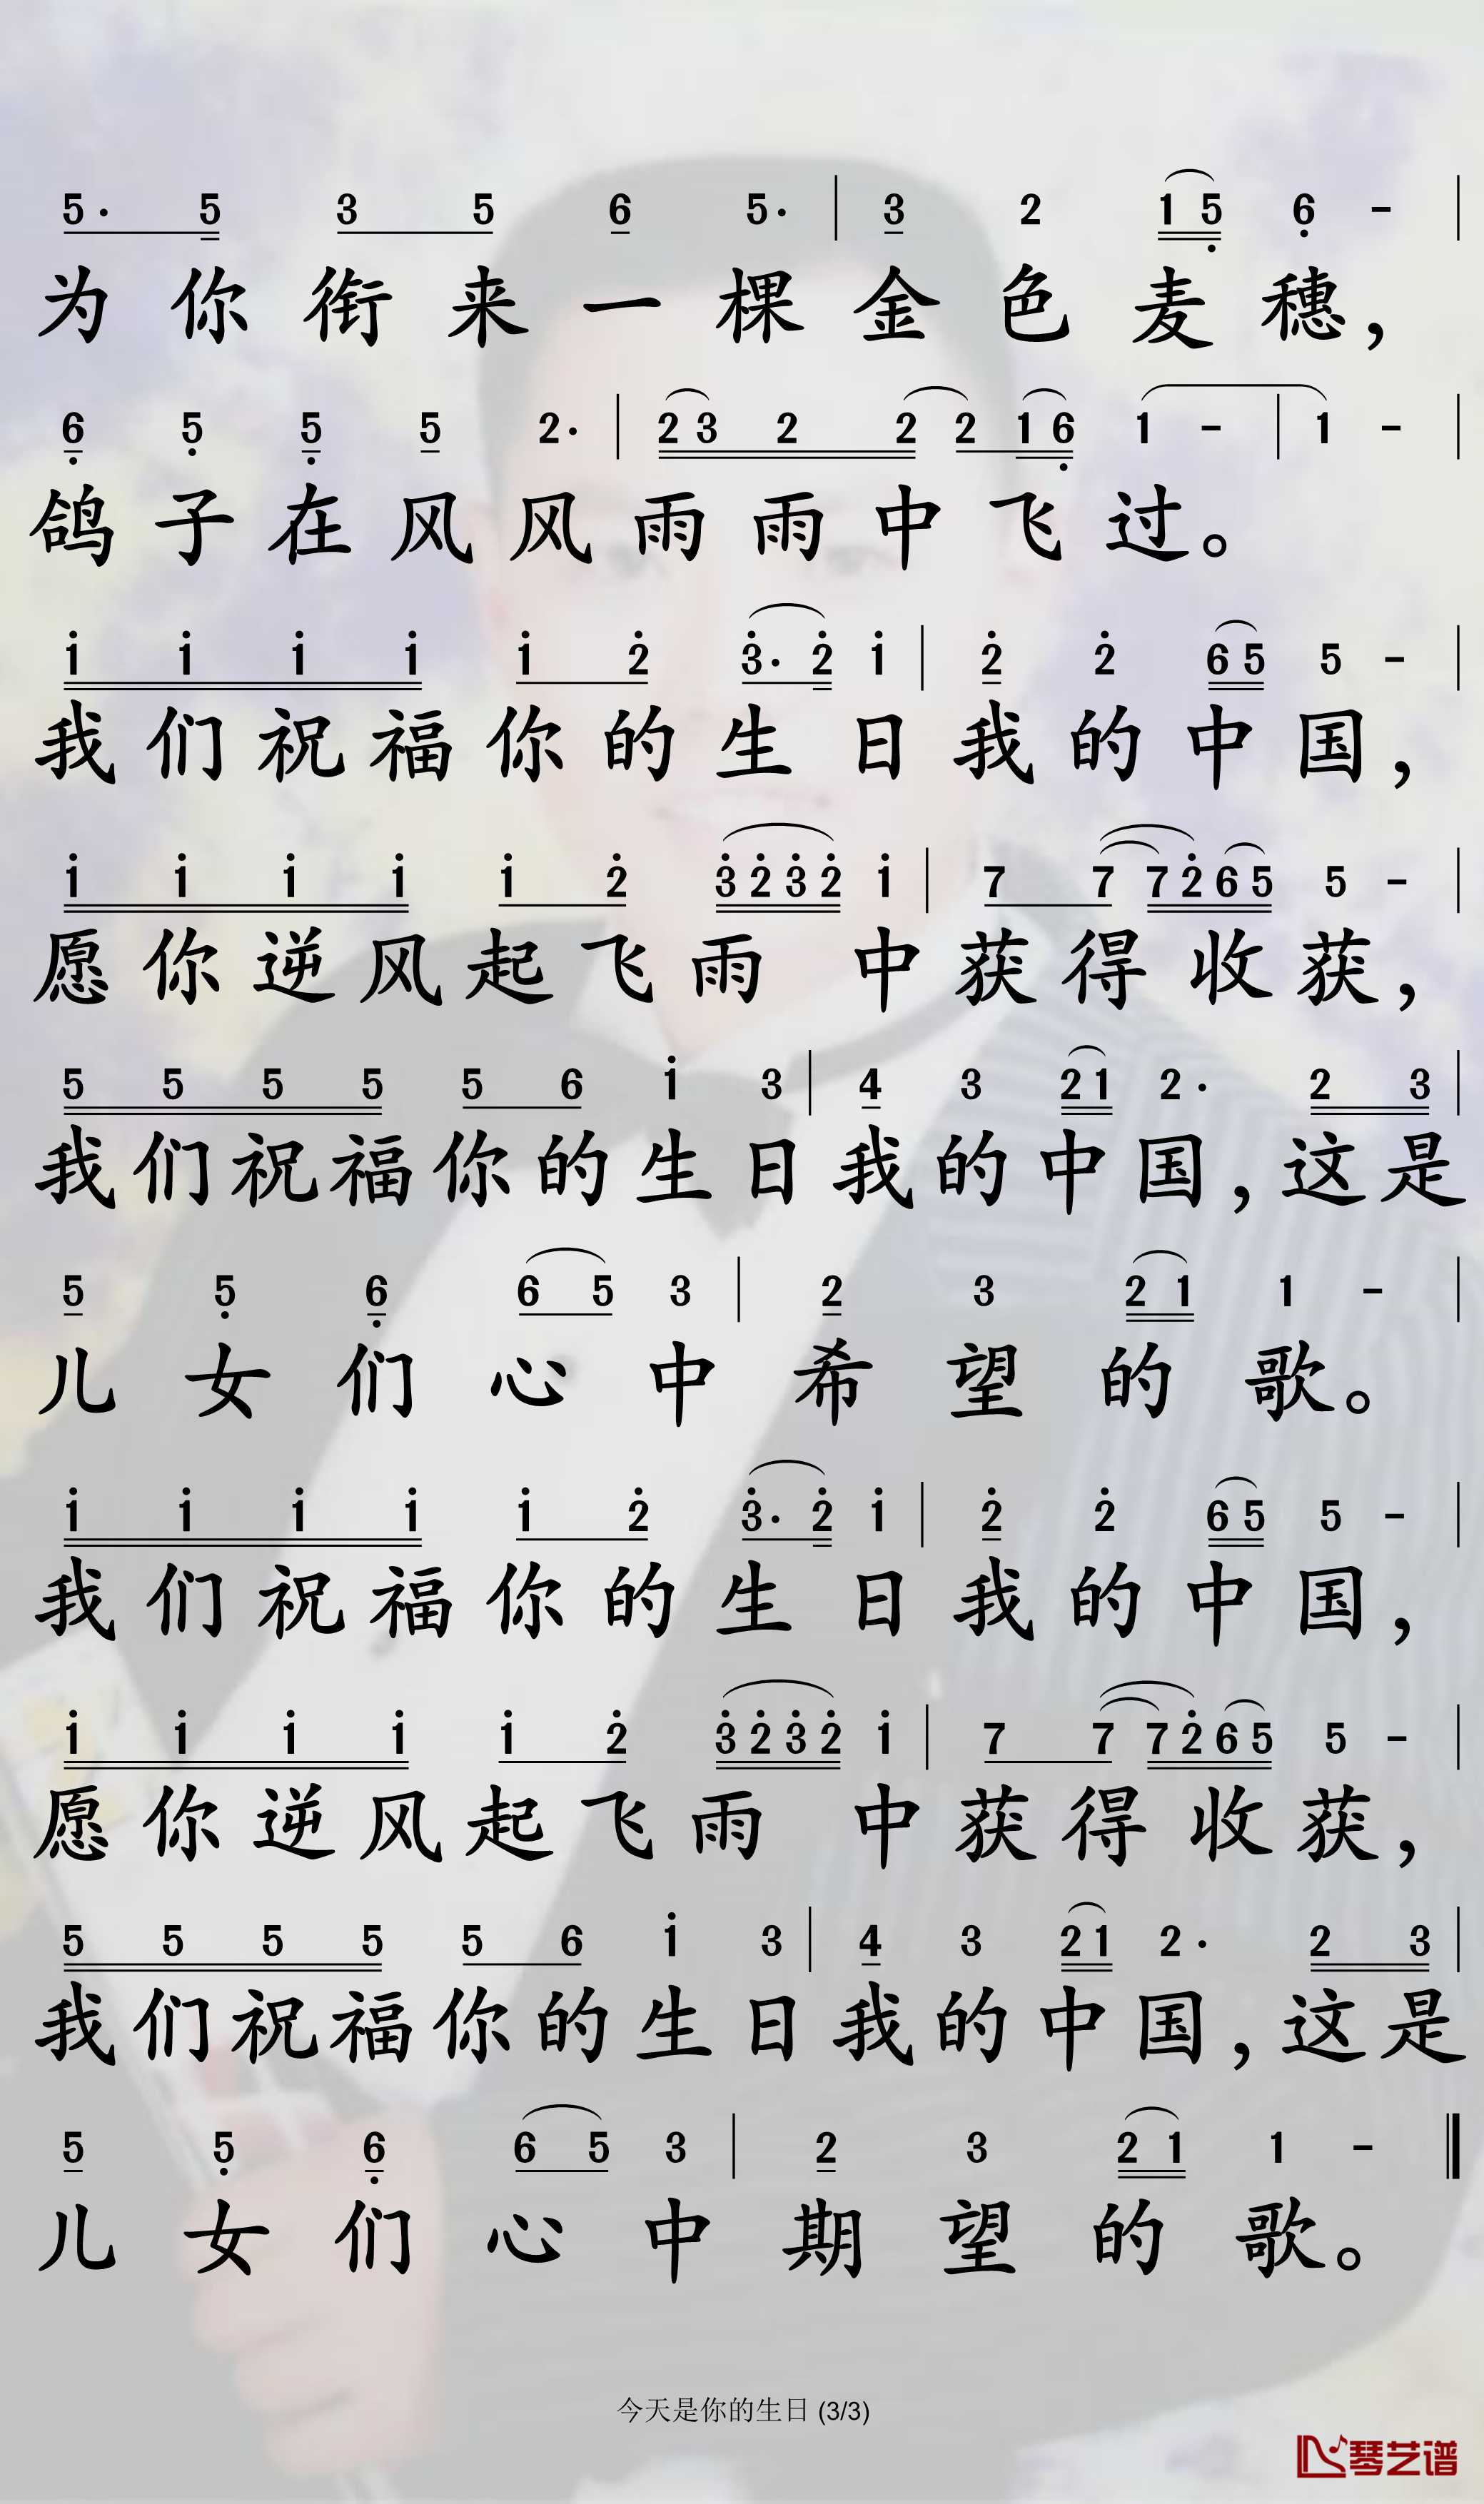 5· 5 3 5 6 5· | 3 2 1 5 6 - |
为你衔来一棵金色麦穗，
6 5 5 5 2· | 2 3 2 2 2 1 6 1 - | 1 - |
鸽子在风风雨雨中飞过。
1 1 1 1 1 2 3· 2 1 | 2 2 6 5 5 - |
我们祝福你的生日我的中国，
1 1 1 1 1 2 3 2 3 2 1 | 7 7 7 2 6 5 5 - |
愿你逆风起飞雨 中获得收获，
5 5 5 5 5 6 1 3 | 4 3 2 1 2· 2 3 |
我们祝福你的生日我的中国，这是
5 5 6 6 5 3 | 2 3 2 1 1 - |
儿女们心中希望的歌。
1 1 1 1 1 2 3· 2 1 | 2 2 6 5 5 - |
我们祝福你的生日我的中国，
1 1 1 1 1 2 3 2 3 2 1 | 7 7 7 2 6 5 5 - |
愿你逆风起飞雨 中获得收获，
5 5 5 5 5 6 1 3 | 4 3 2 1 2· 2 3 |
我们祝福你的生日我的中国，这是
5 5 6 6 5 3 | 2 3 2 1 1 - ‖
儿女们心中期望的歌。
今天是你的生日 (3/3)
琴艺谱